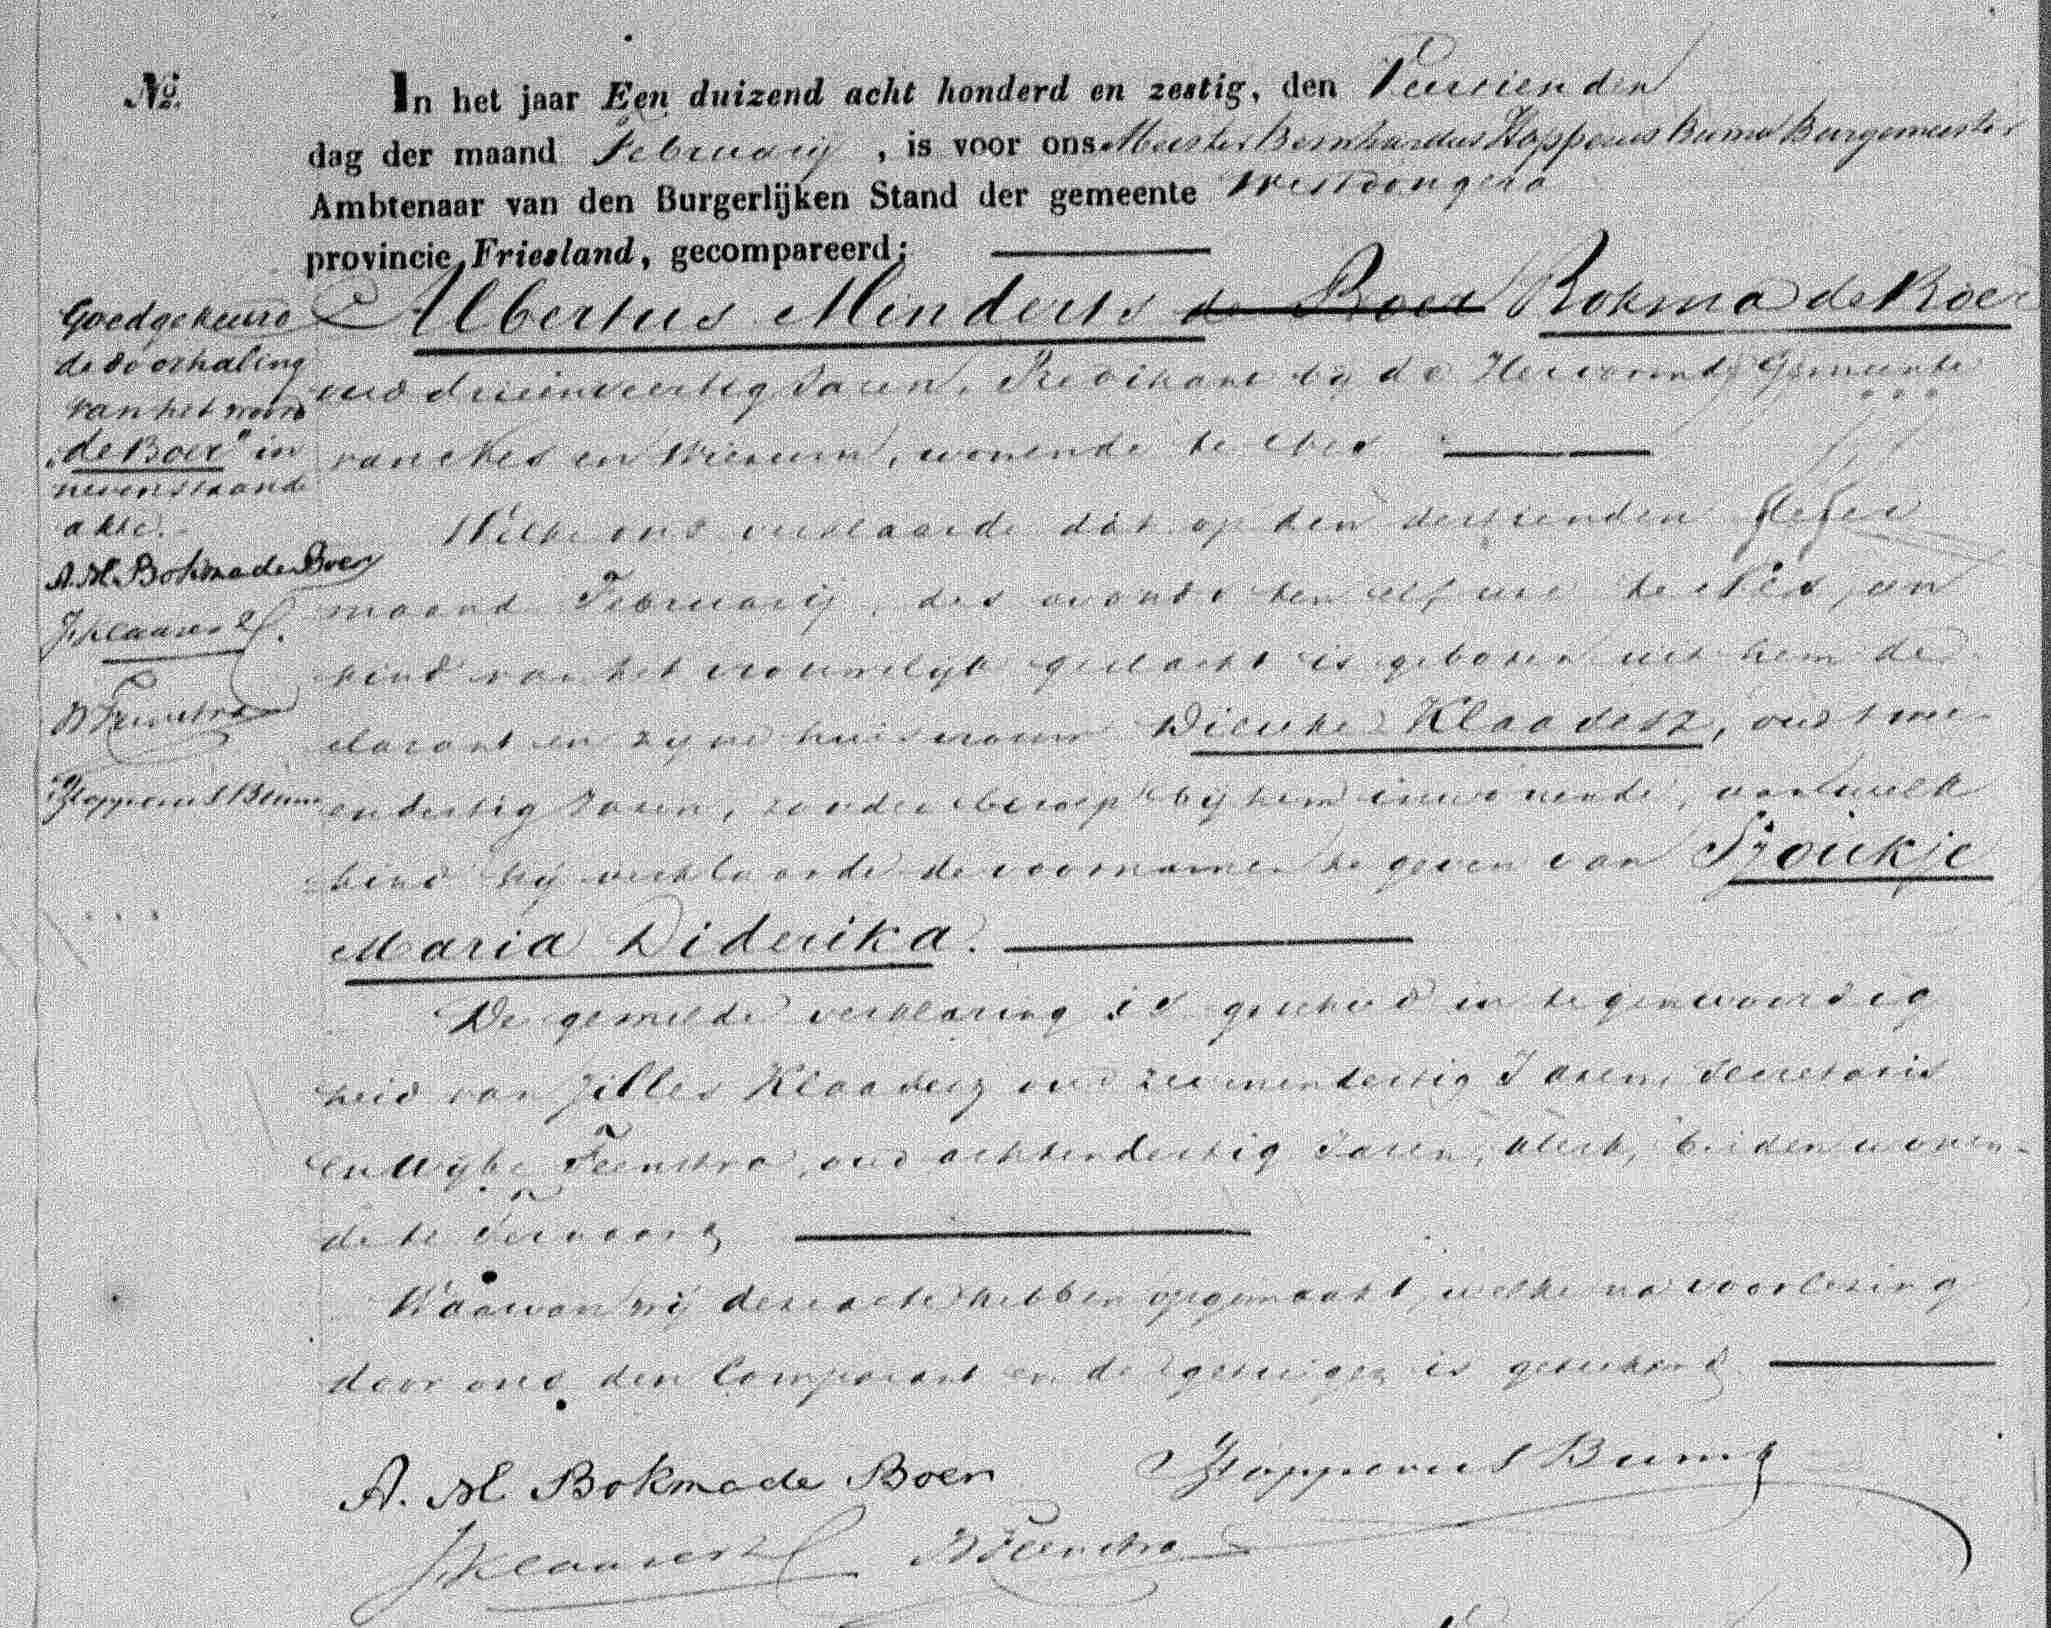 No.
In het jaar Een duizend acht honderd en zestig, den Veertienden
dag der maand Februarij, is voor ons Meester Bernhardus Hopperus Buma Burgemeester
Ambtenaar van den Burgerlijken Stand der gemeente Westdongera
provincie Friesland, gecompareerd:
Albertus Minderts de Boer Bokma de Boer
oud drieenveertig Jaren, Predikant bij de Hervormde Gemeente
van Nes en Wierum, wonende te Nes
Welke ons verklaarde dat op den dertienden dezer
maand Februarij, des avonds ten elf ure te Nes, een
kind van het vrouwelijk geslacht is geboren uit hem de-
clarant en zijne huisvrouw Dieuke Klaasesz, oud twee
endertig Jaren, zonder beroep bij hem inwonende, aan welk
kind hij verklaarde de voornamen te geven van Sjoukje
Maria Diderika.
De gemelde verklaring is geschied in tegenwoordig
heid van Jilles Klaasesz oud zevenendertig Jaren, Secretaris
en Wijbe Feenstra, oud achtendertig Jaren, klerk, beiden wonen-
de te Ternaard
Waarvan wij deze acte hebben opgemaakt, welke na voorlezing
door ons, den Comparant en de getuigen is geteekend
A. M. Bokma de Boer Hopperus Buma
J Klaasesz W Feenstra
Goedgekeurd
de doorhaling
van het woord
"de Boer" in
nevenstaande
akte.
A. M. Bokma de Boer
J Klaasesz
W Feenstra
Hopperus Buma